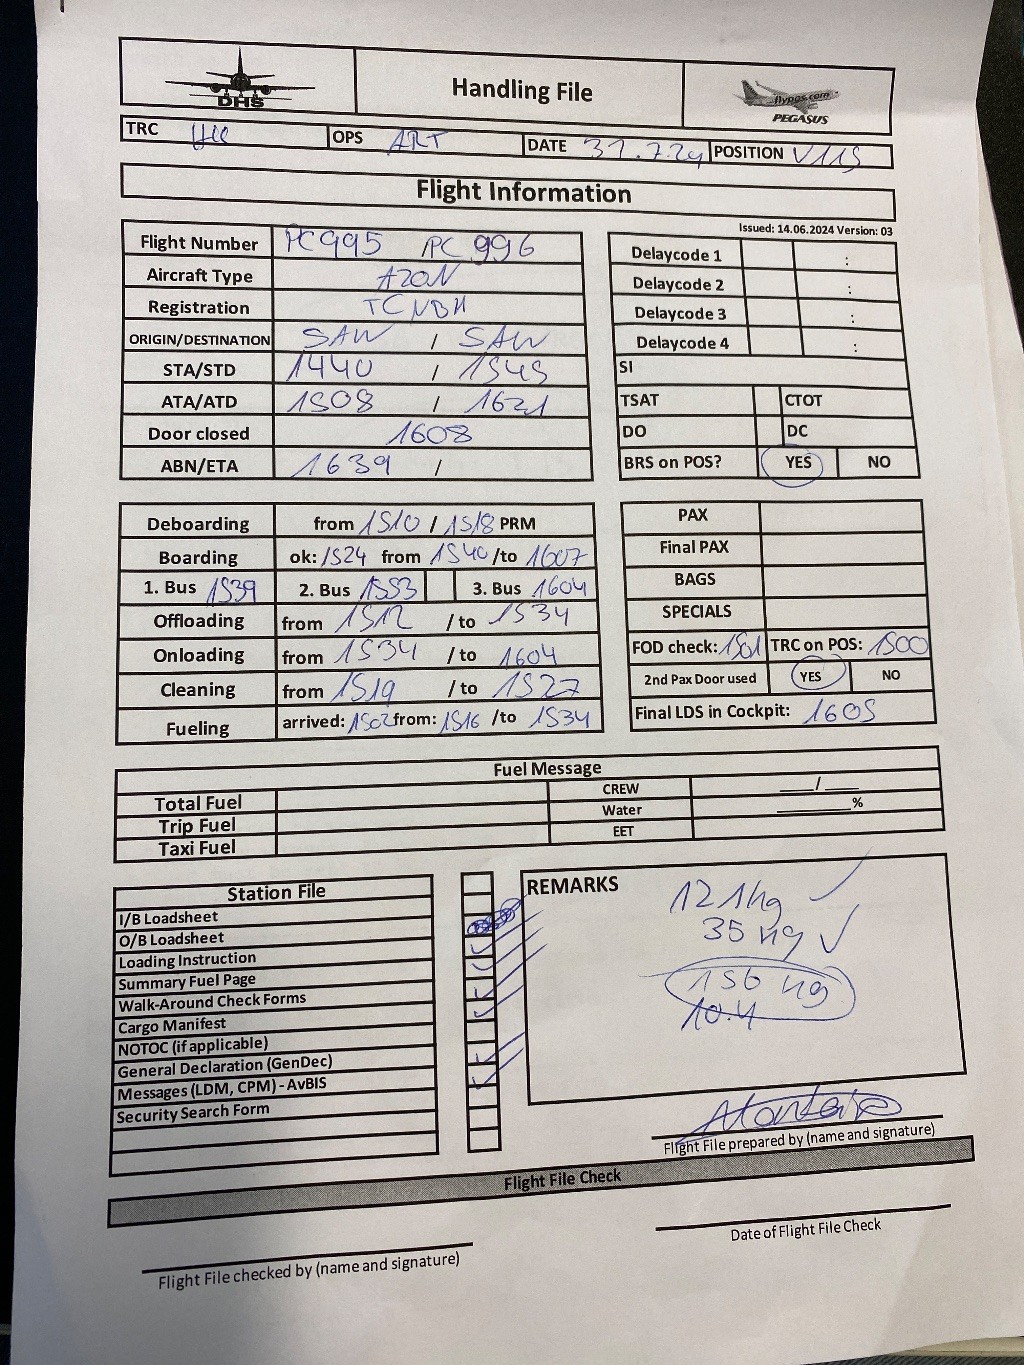 DHS
Handling File
flypgs.com
PEGASUS
TRC OPS ART DATE 31.7.24 POSITION V115
Flight Information
Issued: 14.06.2024 Version: 03
Flight Number PC995 PC 996
Aircraft Type A20N
Registration TCNBH
ORIGIN/DESTINATION SAW / SAW
STA/STD 1440 / 1545
ATA/ATD 1508 / 1621
Door closed 1608
ABN/ETA 1639 /
Delaycode 1 :
Delaycode 2 :
Delaycode 3 :
Delaycode 4 :
SI
TSAT CTOT
DO DC
BRS on POS? YES NO
Deboarding from 1510 / 1518 PRM
Boarding ok: 1524 from 1540 /to 1607
1. Bus 1539 2. Bus 1553 3. Bus 1604
Offloading from 1512 / to 1534
Onloading from 1534 / to 1604
Cleaning from 1519 / to 1527
Fueling arrived: 1502 from: 1516 /to 1534
PAX
Final PAX
BAGS
SPECIALS
FOD check: 1501 TRC on POS: 1500
2nd Pax Door used YES NO
Final LDS in Cockpit: 1605
Fuel Message
Total Fuel CREW ___/___
Trip Fuel Water ______%
Taxi Fuel EET
Station File
I/B Loadsheet
O/B Loadsheet
Loading Instruction
Summary Fuel Page
Walk-Around Check Forms
Cargo Manifest
NOTOC (if applicable)
General Declaration (GenDec)
Messages (LDM, CPM) - AvBIS
Security Search Form
REMARKS
121kg ✓
35 kg ✓
156 kg
10.4
Flight File prepared by (name and signature)
Flight File Check
Flight File checked by (name and signature)
Date of Flight File Check